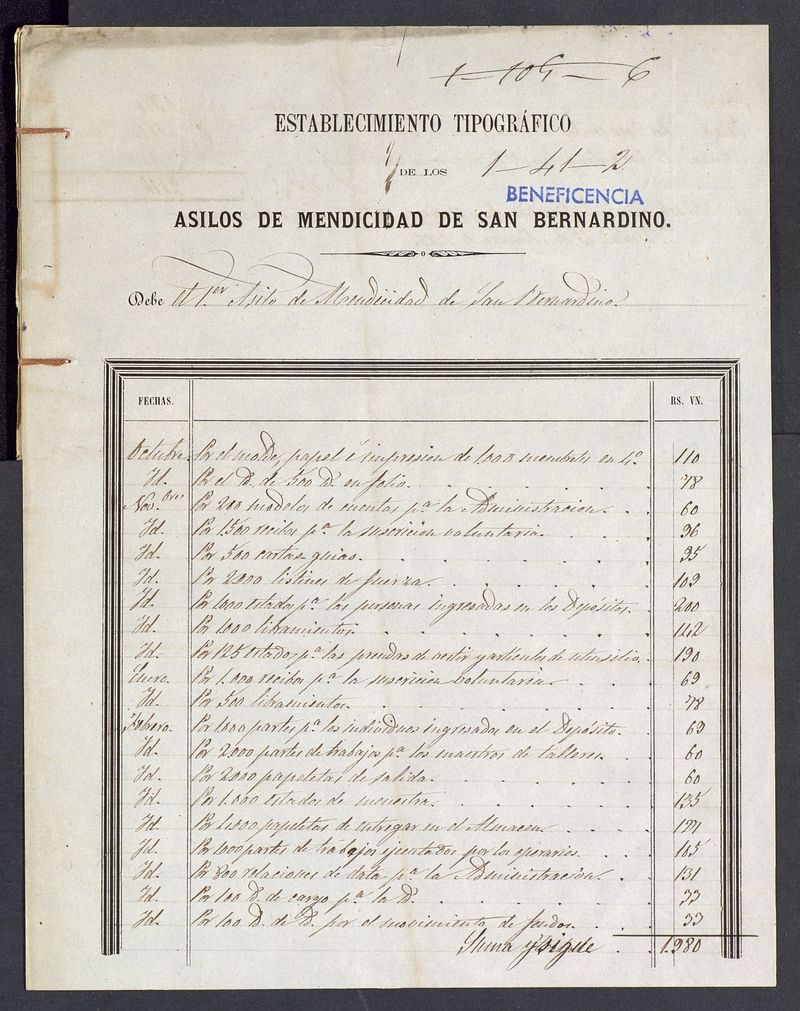 1-105-6
ESTABLECIMIENTO TIPOGRÁFICO
DE LOS 1-41-2
BENEFICENCIA
ASILOS DE MENDICIDAD DE SAN BERNARDINO.
Debe El 1.er Asilo de Mendicidad de San Bernardino.
FECHAS. RS. VN.
Octubre. Por el molde, papel é impresion de 1.000 membretes en 4º. 110
Id. Por el D. de 500 D. en folio. 78
Nov.bre Por 200 modelos de cuentas p.a la Administracion. 60
Id. Por 1500 recibos p.a la suscricion voluntaria. 96
Id. Por 500 cartas guias. 95
Id. Por 2000 listines de fuerza. 109
Id. Por 1000 estados p.a las personas ingresadas en los Depósitos. 200
Id. Por 1000 libramientos. 142
Id. Por 125 estados p.a las prendas de vestir y articulos de utensilio. 190
Enero. Por 1.000 recibos p.a la suscricion voluntaria. 69
Id. Por 500 libramientos. 78
Febrero. Por 1000 partes p.a los individuos ingresados en el Depósito. 69
Id. Por 2,000 partes de trabajos p.a los maestros de talleres. 60
Id. Por 2000 papeletas de salida. 60
Id. Por 1.000 estados de menestra. 135
Id. Por papeletas de entregar en el Almacen. 127
Id. Por 1000 partes de trabajos ejecutados por los operarios. 105
Id. Por 800 relaciones de data p.a la Administración. 131
Id. Por 100 D. de cargo p.a la D. 33
Id. Por 100 D. de D. por el movimiento de fondos. 33
Suma y sigue 1.980